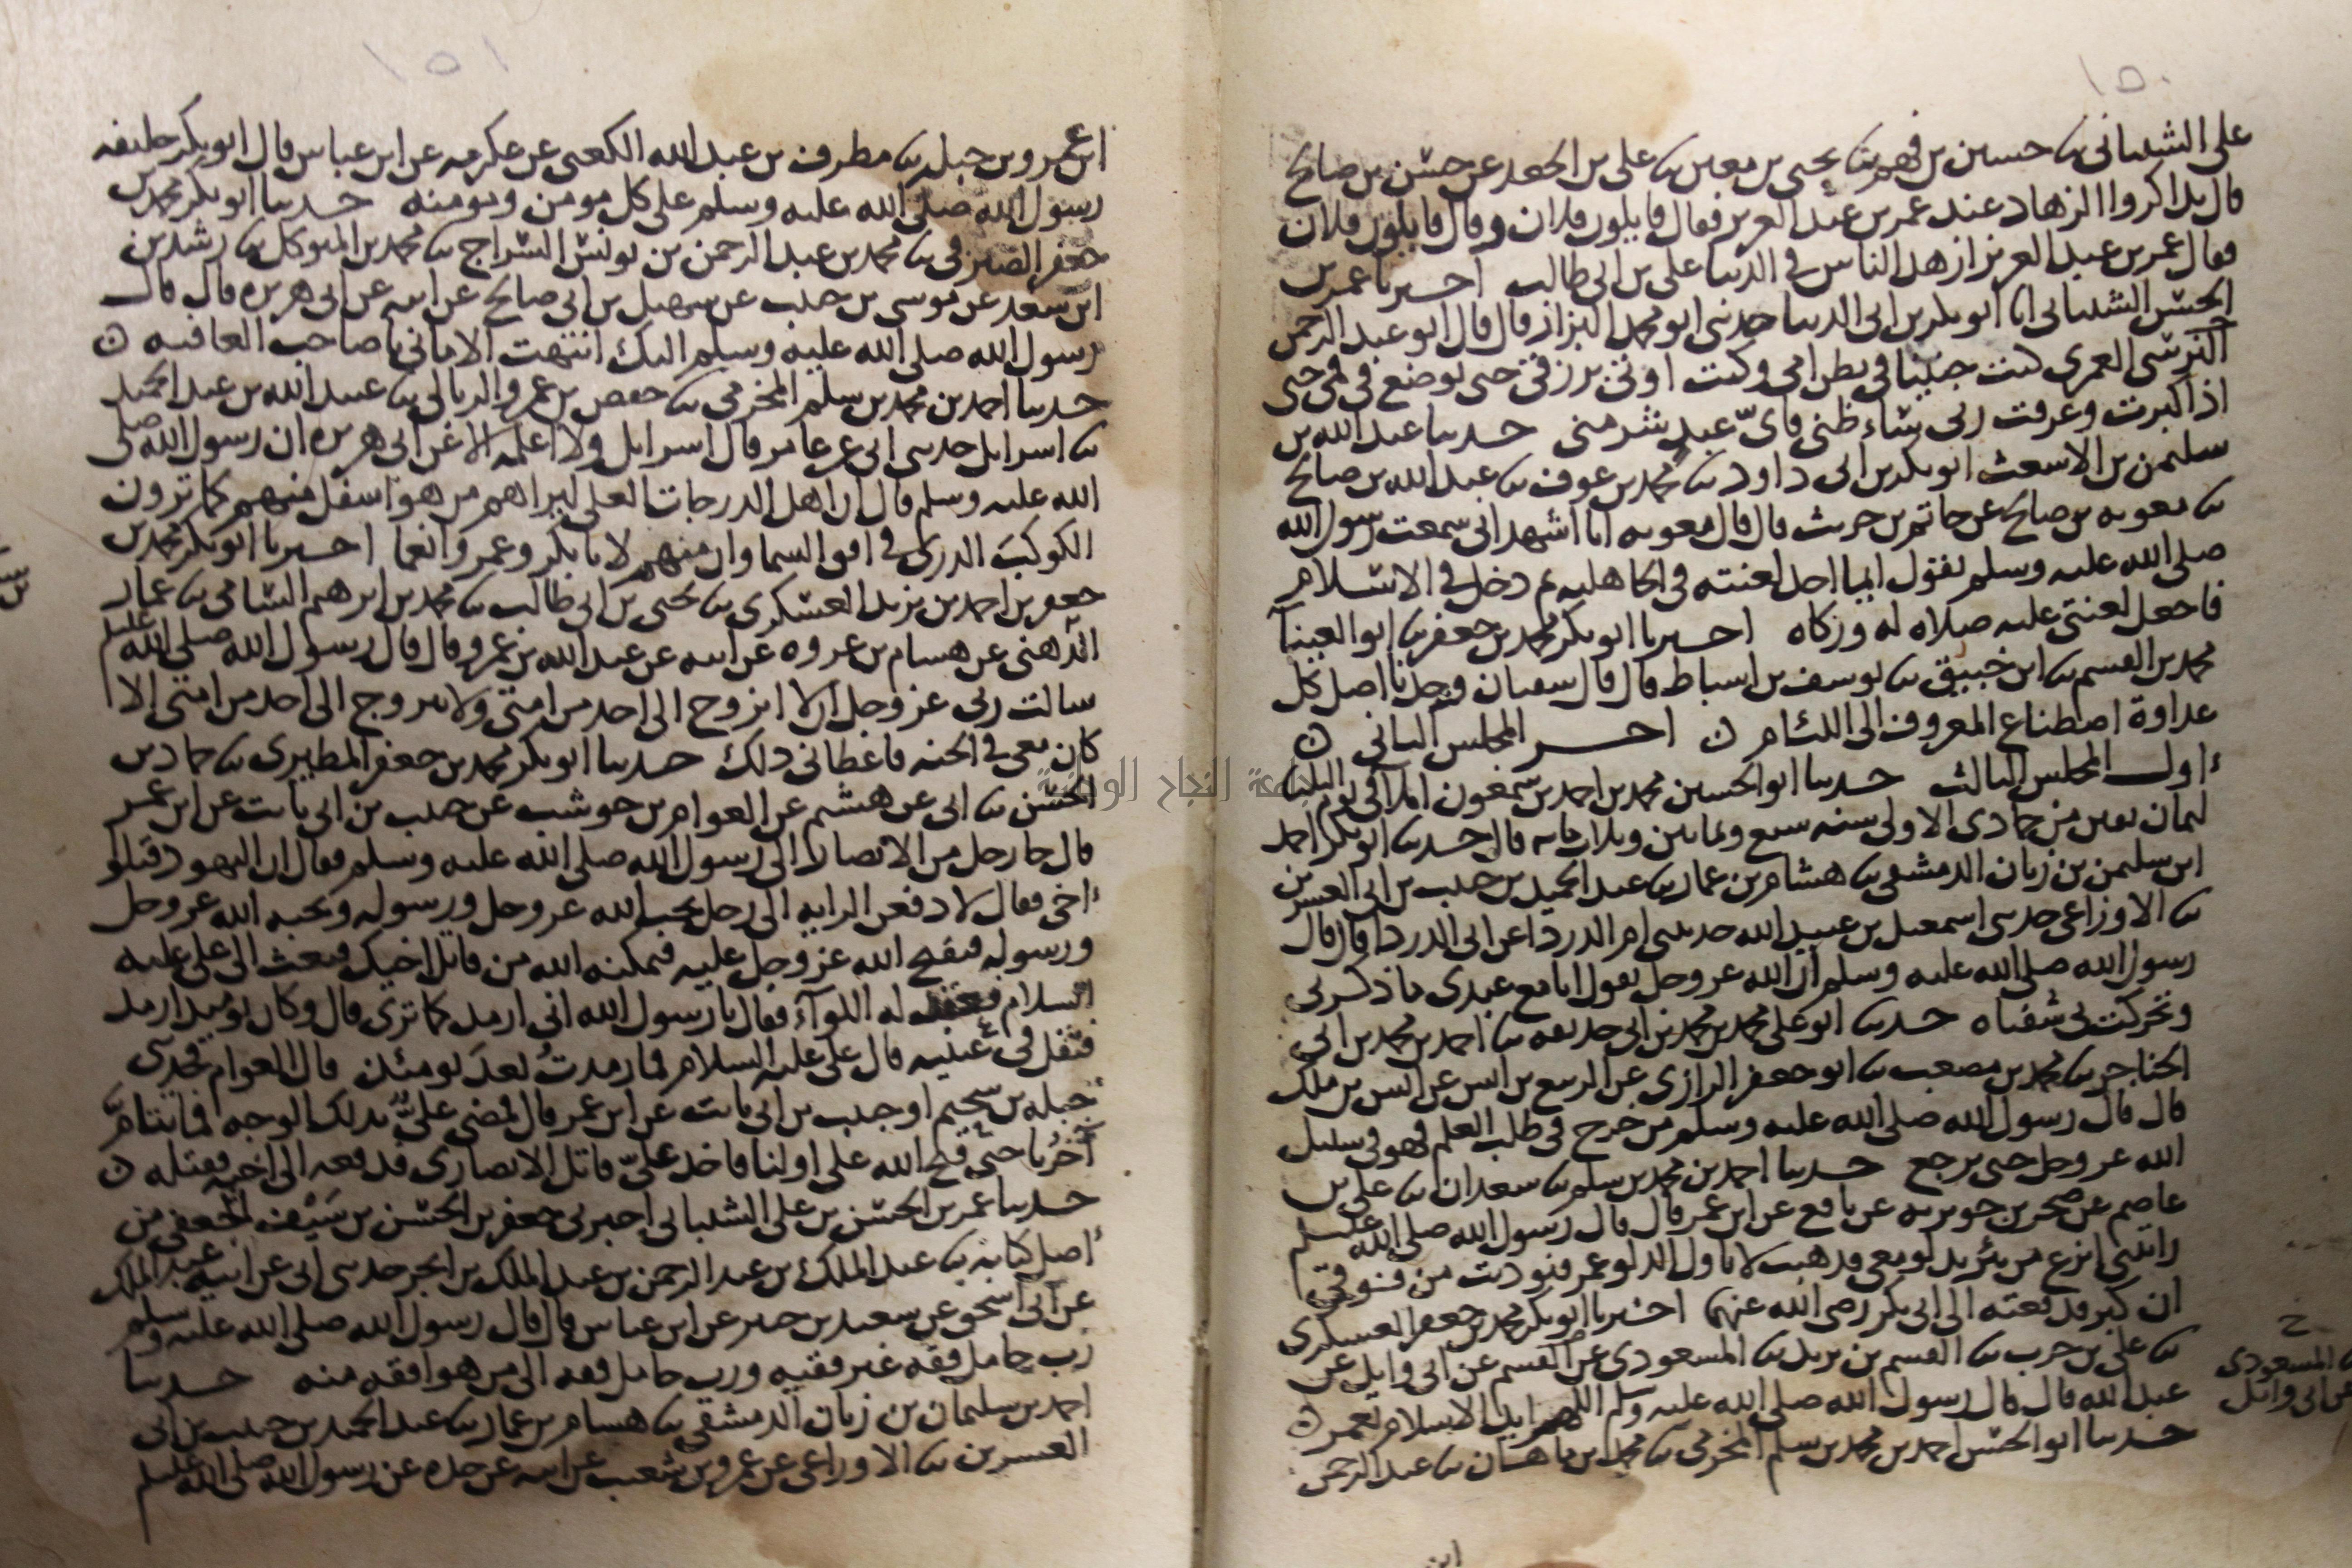 ١٥٠
على الشيباني نا حسين بن فهم نا يحيى بن معين نا على بن الجعد عن حسن بن صالح
قال تذاكروا الزهاد عند عمر بن عبد العزيز فقال قايلون فلان وقال قايلون فلان
فقال عمر بن عبد العزيز ازهد الناس في الدنيا على بن ابى طالب اخبرنا عمر بن
الحسن الشيباني انا ابو بكر بن ابى الدنيا حدثنى ابو محمد البزاز قال قال ابو عبد الرحمن
العمرى كنت جنينا في بطن امى وكنت اوتى برزقى حتى يوضع في فمى حتى
اذا كبرت وعرفت ربى ساء ظنى فاىّ عبد شر منى حدثنا عبد الله بن
سليمن بن الاشعث ابو بكر بن ابى داود نا محمد بن عوف نا عبد الله بن صالح
نا معويه بن صالح عن حاتم بن حريث قال قال معويه انا اشهد انى سمعت رسول الله
صلى الله عليه وسلم يقول ايما احد لعنته في الجاهليه ثم دخل في الاسلام
فاجعل لعنتى عليه صلاه له وزكاه اخبرنا ابو بكر محمد بن جعفر نا ابو العيناء
محمد بن القسم نا ابن خبيق نا يوسف بن اسباط قال قال سفيان وجدنا اصل كل
عداوة اصطناع المعروف الى اللئام ن اخر المجلس الثاني ن
اول المجلس الثالث حدثنا ابو الحسين محمد بن احمد بن سمعون املا في يوم الثلثا
لثمان بقين من جمادى الاولى سنه سبع وثمانين وثلاثمايه قال حدثنا ابو بكر احمد
ابن سليمن بن زبان الدمشقى نا هشام بن عمار نا عبد الحميد بن حبيب بن ابى العشرين
نا الاوزاعى حدثنى اسمعيل بن عبيد الله حدثتنى ام الدرداء عن ابى الدرداء قال قال
رسول الله صلى الله عليه وسلم ان الله عز وجل يقول انا مع عبدى ما ذكرنى
وتحركت بى شفتاه حدثنا ابو على محمد بن محمد بن ابى حذيفه نا احمد بن محمد بن ابى
الخناجر نا محمد بن مصعب نا ابو جعفر الرازى عن الربيع بن انس عن انس بن ملك
قال قال رسول الله صلى الله عليه وسلم من خرج في طلب العلم فهو في سبيل
الله عز وجل حتى يرجع حدثنا احمد بن محمد بن سلم نا سعدان نا على بن
عاصم عن صخر بن جويريه عن نافع عن ابن عمر قال قال رسول الله صلى الله عليه وسلم
رايتنى انزع من بئر بدلو معى فذهبت لاناول الدلو عمر فنوديت من فوقى
ان كبر فدفعته الى ابى بكر رضى الله عنهما اخبرنا ابو بكر محمد بن جعفر العسكرى
نا على بن حرب نا القسم بن يزيد نا المسعودى عن القسم عن ابى وايل عن
عبد الله قال قال رسول الله صلى الله عليه وسلم اللهم ايد الاسلام بعمر ن
حدثنا ابو الحسن احمد بن محمد بن سلم المخرمى نا محمد بن ماهان نا عبد الرحمن
خ
نا المسعودى
عن ابى وائل
ابن
١٥١
ابن عمرو بن جبله نا مطرف بن عبد الله الكعبى عن عكرمه عن ابن عباس قال ابو بكر خليفه
رسول الله صلى الله عليه وسلم على كل مومن ومومنه حدثنا ابو بكر محمد بن
جعفر الصيرفى نا محمد بن عبد الرحمن بن يونس السراج نا محمد بن المتوكل نا رشدين
ابن سعد عن موسى بن حبيب عن سهيل بن ابى صالح عن ابيه عن ابى هريره قال قال
رسول الله صلى الله عليه وسلم اليك انتهت الامانى يا صاحب العافيه ن
حدثنا احمد بن محمد بن سلم المخرمى نا حفص بن عمرو الربالى نا عبيد الله بن عبد المجيد
نا اسرايل حدثنى ابى عن عامر قال اسرايل ولا اعلمه الا عن ابى هريره ان رسول الله صلى
الله عليه وسلم قال ان اهل الدرجات العلى ليراهم من هو اسفل منهم كما ترون
الكوكب الدرى في افق السما وان منهم لابا بكر وعمر وانعما اخبرنا ابو بكر محمد بن
جعفر بن احمد بن يزيد العسكرى نا يحيى بن ابى طالب نا محمد بن ابرهيم الشامى نا عمار
عن هشام بن عروه عن ابيه عن عبد الله بن عمرو قال قال رسول الله صلى الله عليه وسلم
سالت ربى عز وجل ان لا اتزوج الى احد من امتى ولا يتزوج الى احد من امتى الا
كان معى في الجنه فاعطانى ذلك حدثنا ابو بكر محمد بن جعفر المطيرى نا حماد بن
الحسن نا ابى عن هشيم عن العوام بن حوشب عن حبيب بن ابى ثابت عن ابن عمر
قال جا رجل من الانصار الى رسول الله صلى الله عليه وسلم فقال ان اليهود قتلو
اخى فقال لادفعن الرايه الى رجل يحب الله عز وجل ورسوله ويحبه الله عز وجل
ورسوله فيفتح الله عز وجل عليه فيمكنه الله من قاتل اخيك فبعث الى على عليه
السلام فعقد له اللوآء فقال يا رسول الله انى ارمد كما ترى قال وكان يوميذ ارمد
فتفل في عينيه قال على عليه السلام فما رمدت بعد يومئذ قال العوام فحدثنى
جبله بن سحيم او حبيب بن ابى ثابت عن ابن عمر قال فمضى علىّ بذلك الوجه فما تتام
آخرنا حتى فتح الله على اولنا فاخذ علىّ قاتل الانصارى فدفعه الى اخيه فقتله ن
حدثنا عمر بن الحسن بن على الشيبانى اخبرنى جعفر بن الحسن بن سيف الجعفى من
اصل كتابه نا عبد الملك بن عبد الرحمن بن عبد الملك بن ابجر حدثنى ابى عن ابيه عبد الملك
عن ابى اسحق عن سعيد بن جبير عن ابن عباس قال قال رسول الله صلى الله عليه وسلم
رب حامل فقه غير فقيه ورب حامل فقه الى من هو افقه منه حدثنا
احمد بن سليمان بن زبان الدمشقى نا هشام بن عمار نا عبد الحميد بن حبيب بن ابى
العشرين نا الاوزاعى عن عمرو بن شعيب عن ابيه عن جده عن رسول الله صلى الله عليه وسلم
جامعة النجاح الوطنية